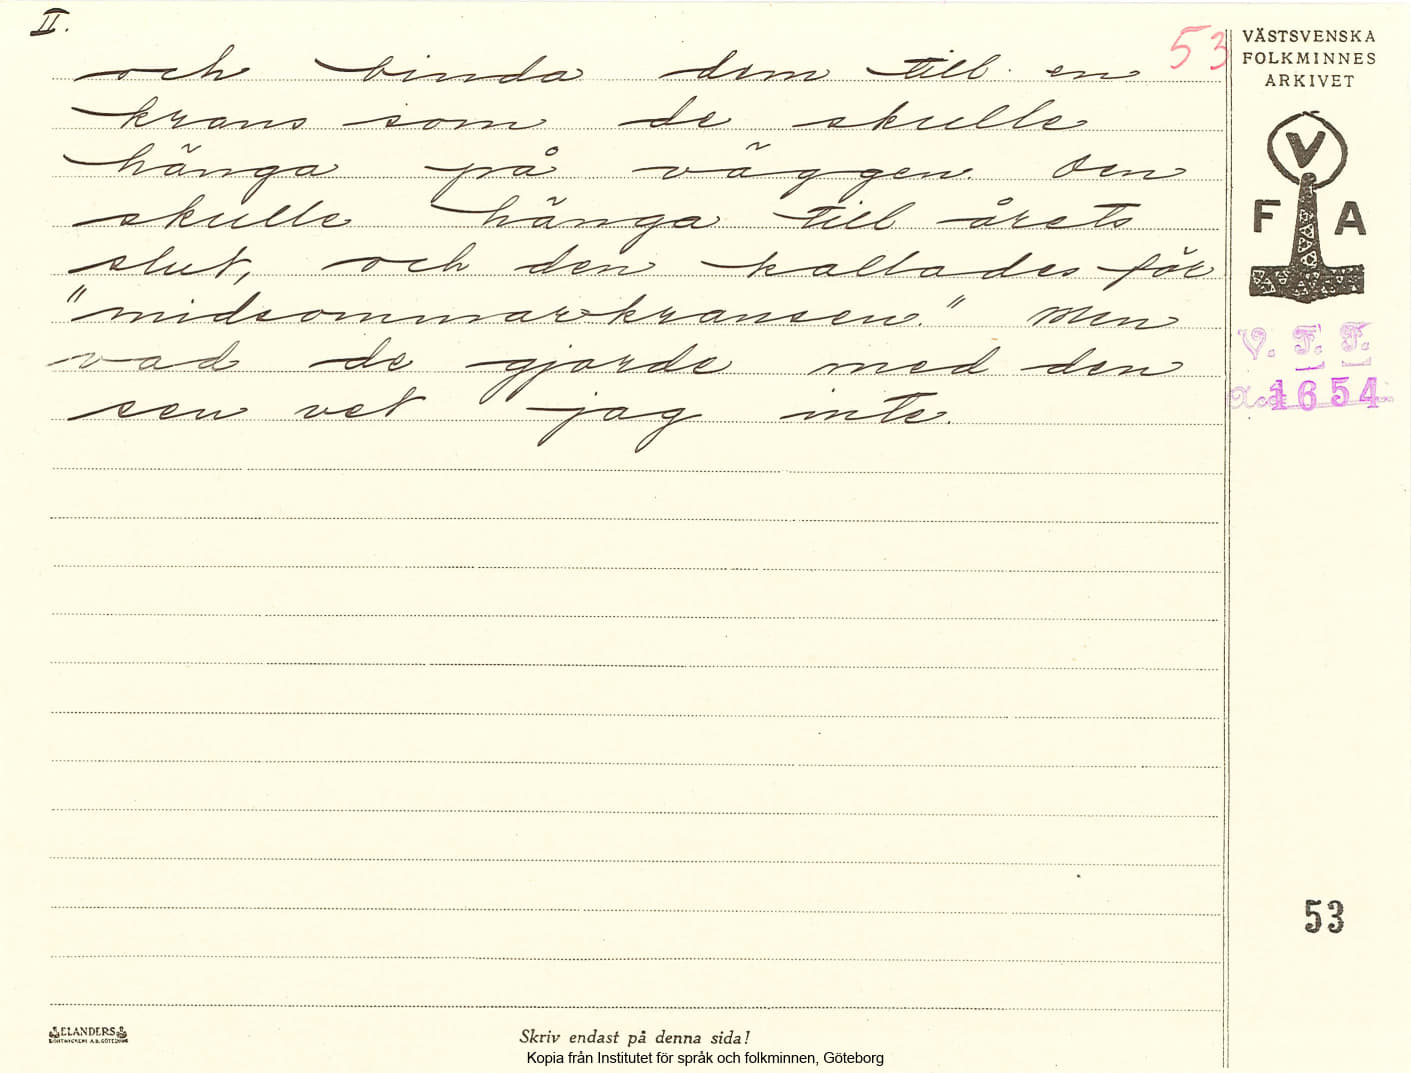 II.
53
och binda dem till en
krans som de skulle
hänga på väggen. Den
skulle hänga till årets
slut, och den kallades för
"midsommarkransen." Men
vad de gjorde med den
sen vet jag inte.
VÄSTSVENSKA
FOLKMINNES
ARKIVET
V
F A
V. F. F.
Acc 1654
53
ELANDERS
BOKTRYCKERI A.B. GÖTEBORG
Skriv endast på denna sida!
Kopia från Institutet för språk och folkminnen, Göteborg